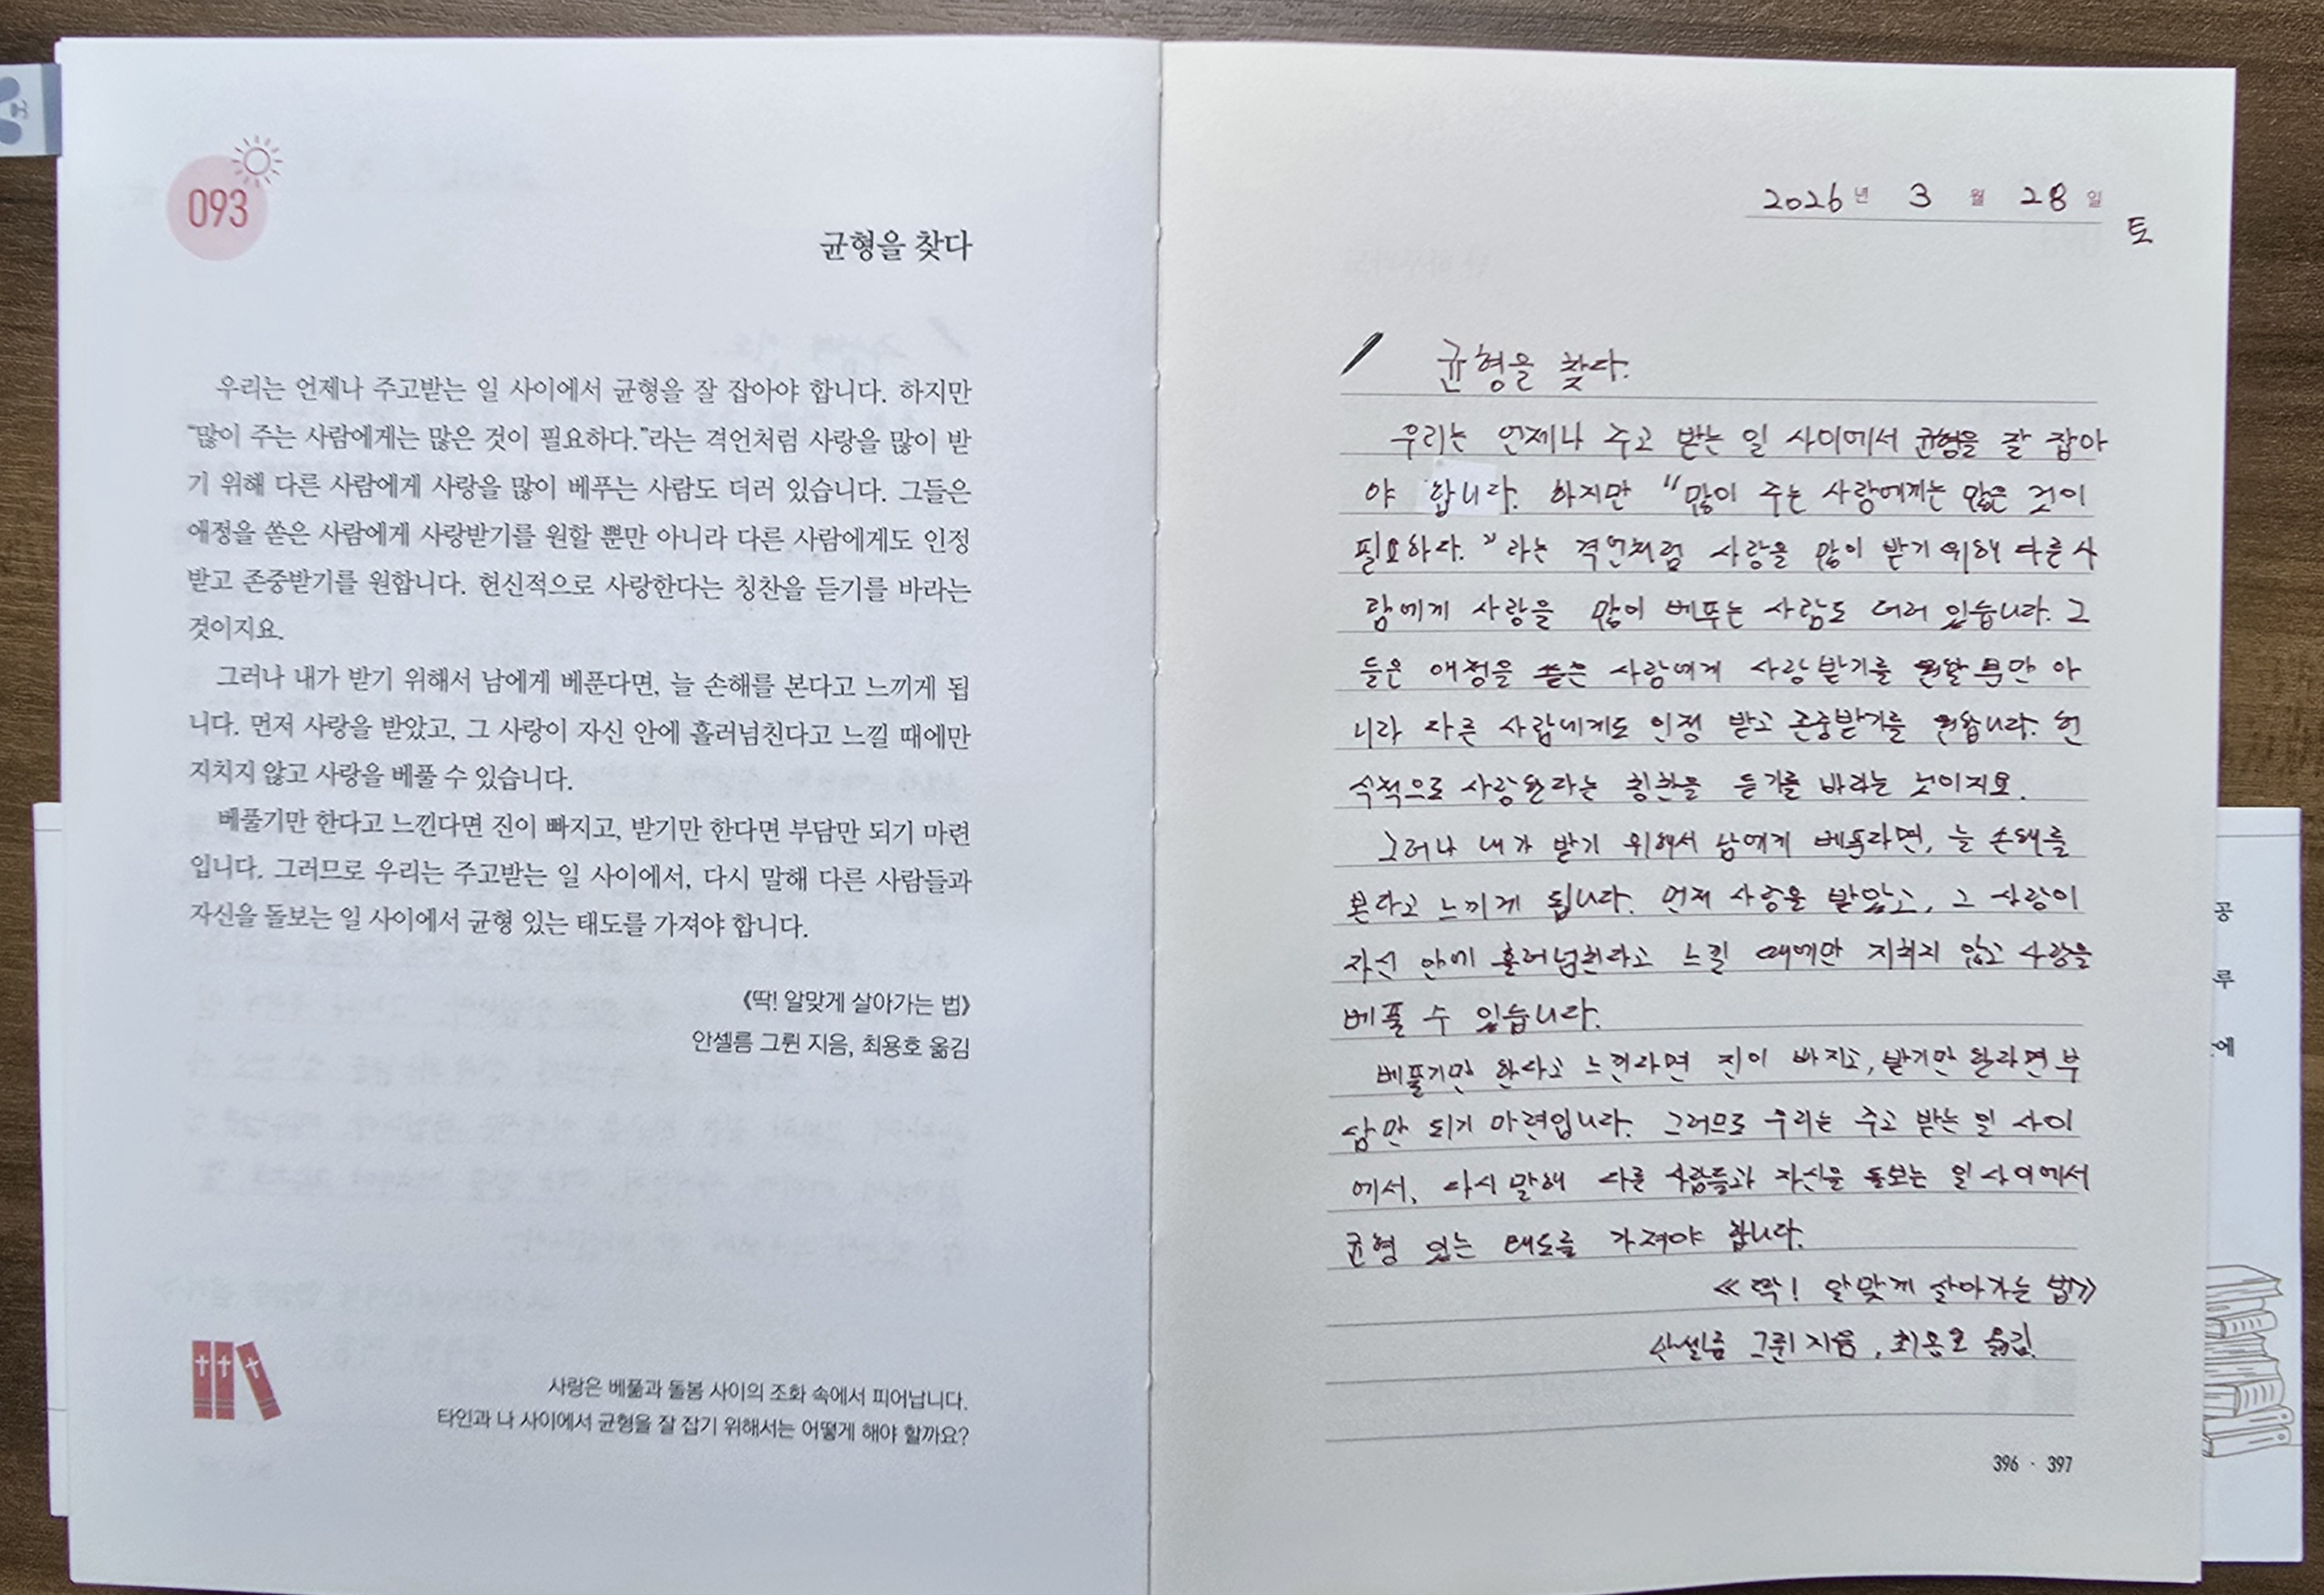 093
균형을 찾다
우리는 언제나 주고받는 일 사이에서 균형을 잘 잡아야 합니다. 하지만
“많이 주는 사람에게는 많은 것이 필요하다.”라는 격언처럼 사랑을 많이 받
기 위해 다른 사람에게 사랑을 많이 베푸는 사람도 더러 있습니다. 그들은
애정을 쏟은 사람에게 사랑받기를 원할 뿐만 아니라 다른 사람에게도 인정
받고 존중받기를 원합니다. 헌신적으로 사랑한다는 칭찬을 듣기를 바라는
것이지요.
그러나 내가 받기 위해서 남에게 베푼다면, 늘 손해를 본다고 느끼게 됩
니다. 먼저 사랑을 받았고, 그 사랑이 자신 안에 흘러넘친다고 느낄 때에만
지치지 않고 사랑을 베풀 수 있습니다.
베풀기만 한다고 느낀다면 진이 빠지고, 받기만 한다면 부담만 되기 마련
입니다. 그러므로 우리는 주고받는 일 사이에서, 다시 말해 다른 사람들과
자신을 돌보는 일 사이에서 균형 있는 태도를 가져야 합니다.
《딱! 알맞게 살아가는 법》
안셀름 그륀 지음, 최용호 옮김
사랑은 베풂과 돌봄 사이의 조화 속에서 피어납니다.
타인과 나 사이에서 균형을 잘 잡기 위해서는 어떻게 해야 할까요?
2026년 3월 28일
토
균형을 찾다.
우리는 언제나 주고 받는 일 사이에서 균형을 잘 잡아
야 합니다. 하지만 “많이 주는 사람에게는 많은 것이
필요하다.”라는 격언처럼 사랑을 많이 받기 위해 다른 사
람에게 사랑을 많이 베푸는 사람도 더러 있습니다. 그
들은 애정을 쏟은 사람에게 사랑받기를 원할 뿐만 아
니라 다른 사람에게도 인정 받고 존중받기를 원합니다. 헌
적으로 사랑한다는 칭찬을 듣기를 바라는 것이지요.
그러나 내가 받기 위해서 남에게 베푼다면, 늘 손해를
본다고 느끼게 됩니다. 먼저 사랑을 받았고, 그 사랑이
자신 안에 흘러넘친다고 느낄 때에만 지치지 않고 사랑을
베풀 수 있습니다.
베풀기만 한다고 느낀다면 진이 빠지고, 받기만 한다면 부
담만 되기 마련입니다. 그러므로 우리는 주고 받는 일 사이
에서, 다시 말해 다른 사람들과 자신을 돌보는 일 사이에서
균형 있는 태도를 가져야 합니다.
≪딱! 알맞게 살아가는 법≫
안셀름 그륀 지음, 최용호 옮김.
396 · 397
공
루
에